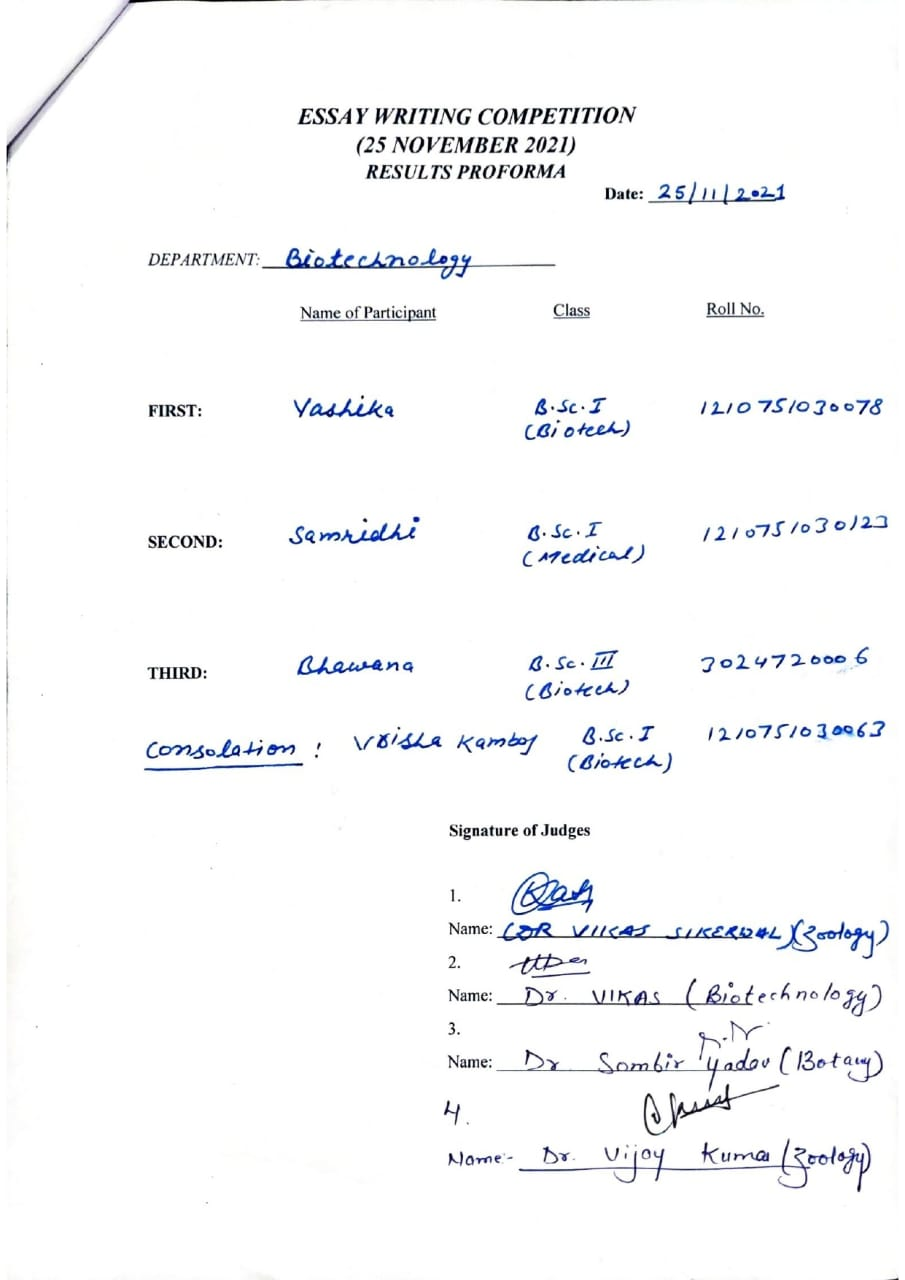 ESSAY WRITING COMPETITION
(25 NOVEMBER 2021)
RESULTS PROFORMA
Date: 25/11/2021
DEPARTMENT: Biotechnology
Name of Participant Class Roll No.
FIRST: Yashika B.Sc.I 1210751030078
(Biotech)
SECOND: Samridhi B.Sc.I 1210751030123
(Medical)
THIRD: Bhawana B.Sc.III 3024720006
(Biotech)
Consolation : Vrisha Kamboj B.Sc.I 1210751030063
(Biotech)
Signature of Judges
1.
Name: (DR VIIKAS SIKERWAL) (Zoology)
2.
Name: Dr. VIKAS (Biotechnology)
3.
Name: Dr Sombir Yadav (Botany)
4.
Name:- Dr. Vijay Kumar (Zoology)